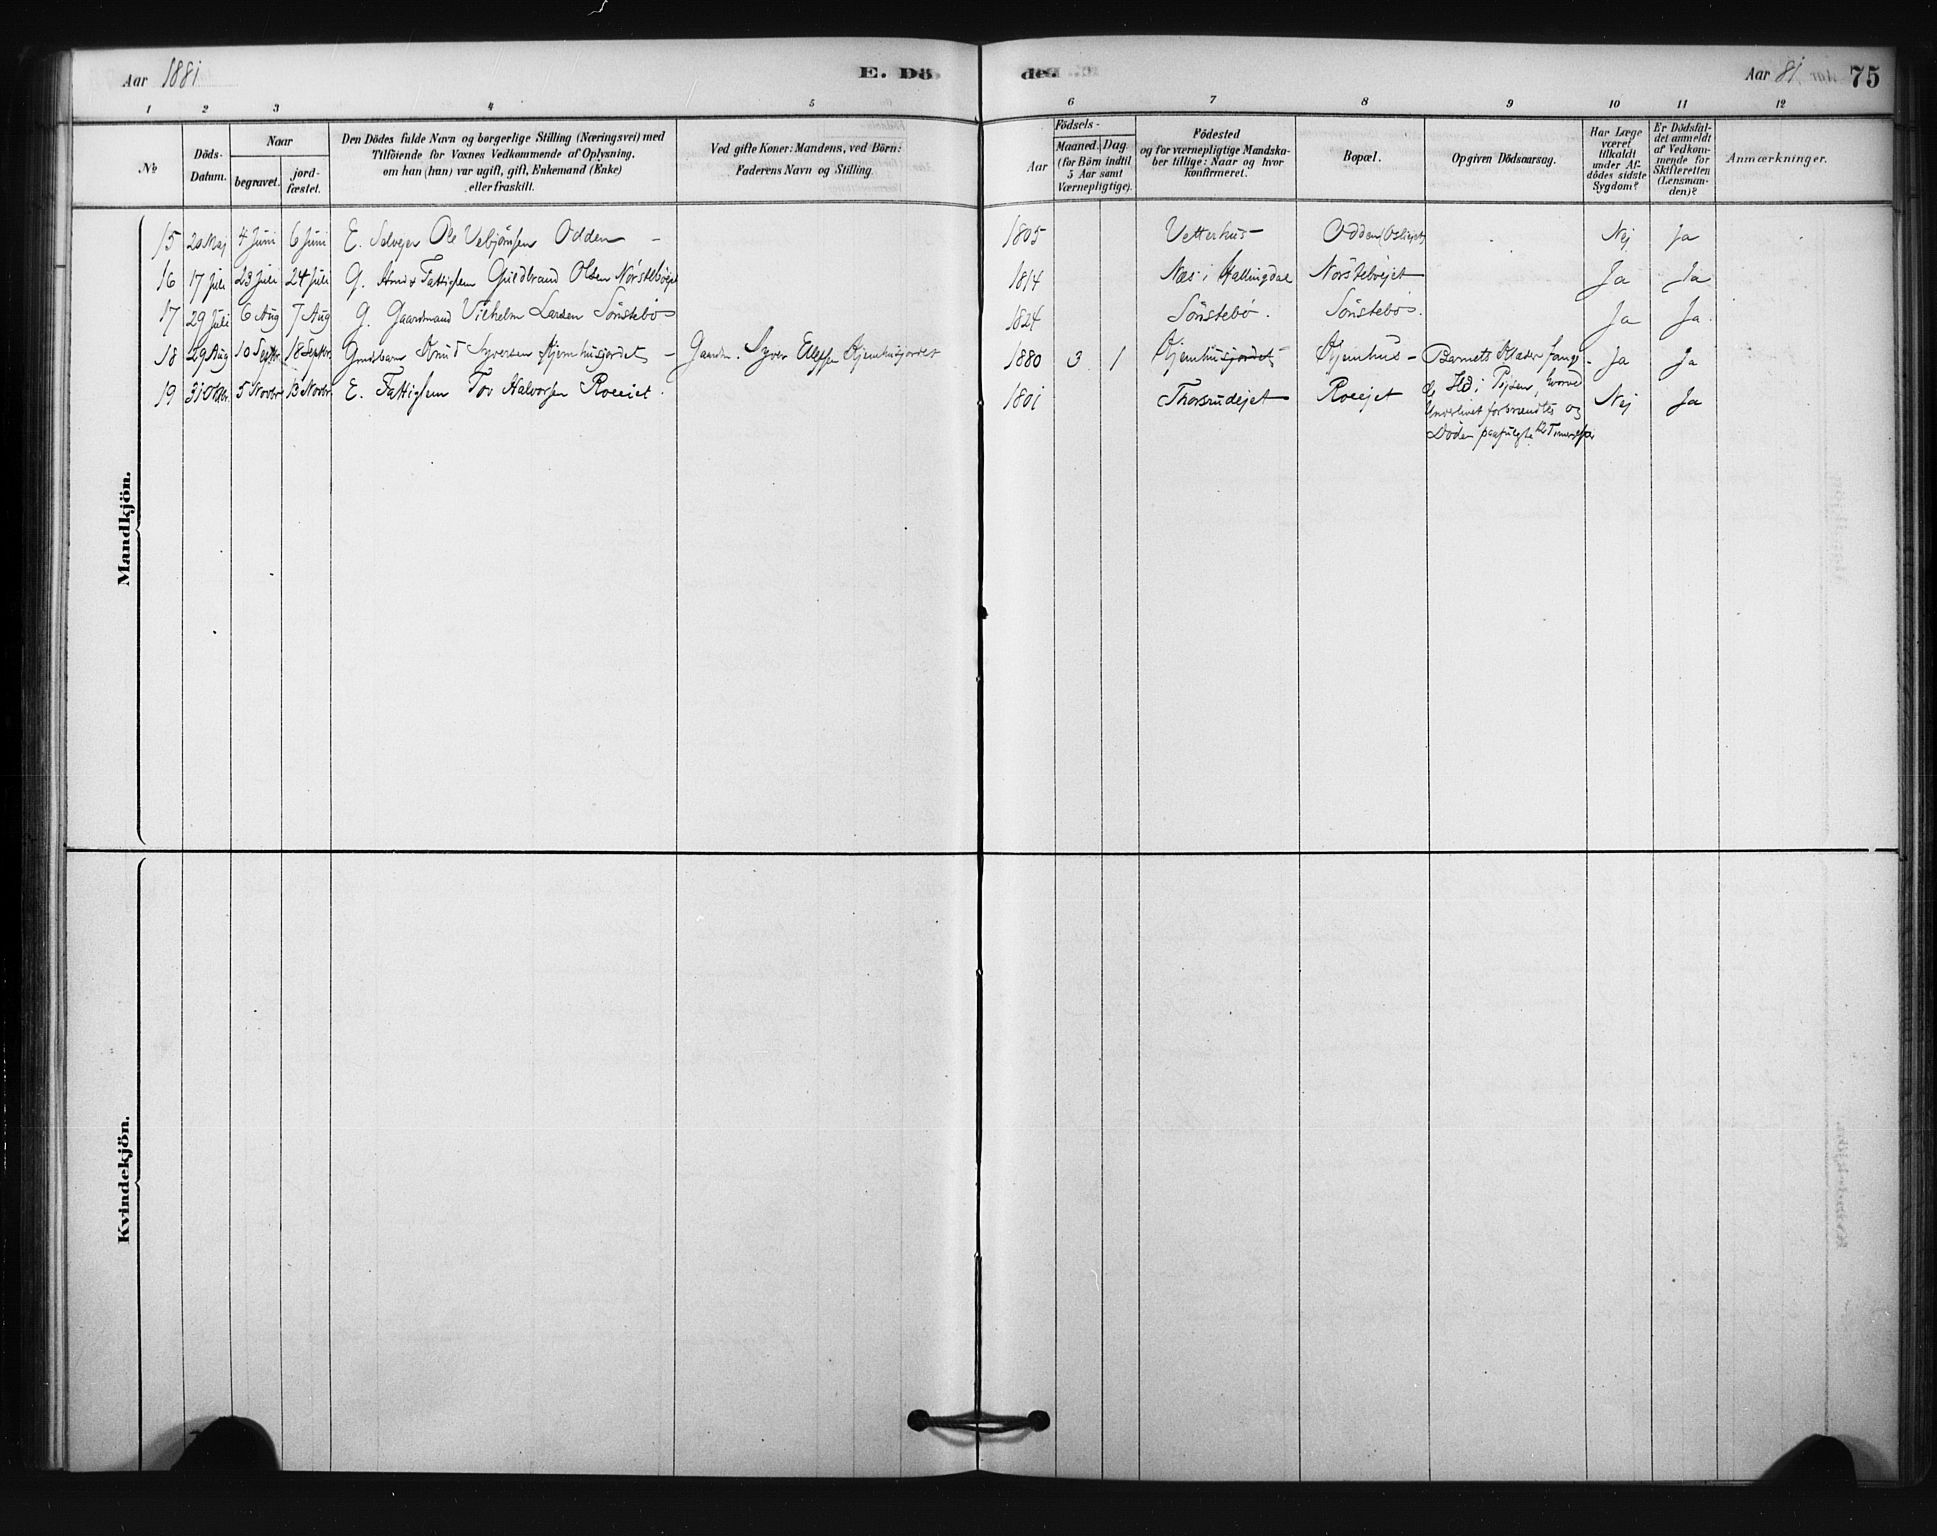 Aar 1881
E. Dö
den.
Aar 81.
75
1 2 3 4 5 6 7 8 9 10 11 12
No
Döds-
Datum.
Naar
begravet.
jord-
fæstet.
Den Dödes fulde Navn og borgerlige Stilling (Næringsvei) med
Tilföiende for Voxnes Vedkommende af Oplysning,
om han (hun) var ugift, gift, Enkemand (Enke)
eller fraskilt.
Ved gifte Koner: Mandens, ved Börn:
Faderens Navn og Stilling.
Födsels-
Aar
Maaned.
Dag.
(for Börn indtil
5 Aar samt
Værnepligtige).
Födested
og for værnepligtige Mandska-
ber tillige: Naar og hvor
konfirmeret.
Bopæl.
Opgiven Dödsaarsag.
Har Læge
været
tilkaldt
under Af-
dödes sidste
Sygdom?
Er Dödsfal-
det anmeldt
af Vedkom-
mende for
Skifteretten
(Lensman-
den)?
Anmærkninger.
Mandkjön.
15 20 Maj 4 Juni 6 Juni E. Selveger Ole Vebjörnsen Odden – 1805 Vetterhus Odden Nej Ja
16 17 Juli 23 Juli 24 Juli G. Fattiglem Guldbrand Olsen Nörstebøejet 1814 Næs i Hallingdal Nörstebøejet Ja Ja
17 29 Juli 6 Aug 7 Aug G. Gaardmand Vilhelm Larsen Sönstebø 1824 Sönstebø. Sönstebø. Ja Ja.
18 29 Aug 10 Septbr 18 Septbr. Knud Syversen Hjemhusjordet – Gaardm. Syver Hjemhusjordet 1880 3 1 Hjemhusjordet Hjemhus – Barnets Klæder fang- Ja Ja
19 31 Oktbr. 5 Novbr 13 Novbr. E. Fattiglem Tov Halvorsen Roeejet. 1801 Thorsrudejet Roeejet Ild i Pejsen, hvorved Nej Ja
Underlivet forbrændtes og
Döden paafulgte 12 Timer
Kvindekjön.